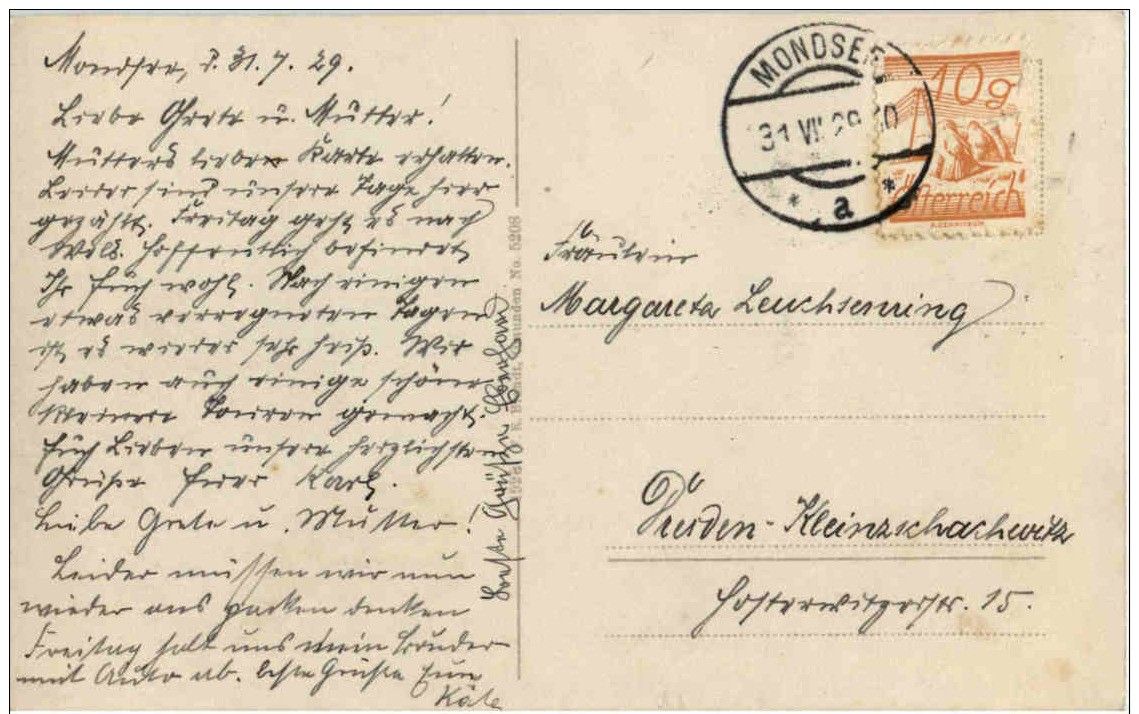 Mondsee, d. 31.7.29.
Liebe Grete u. Mutter!
Mutters liebe Karte erhalten.
Leider sind unsere Tage hier
gezählt. Freitag geht es nach
Wels. Hoffentlich befindet
Ihr Euch wohl. Nach einigen
etwas verregneten Tagen
ist es wieder sehr heiß. Wir
haben auch einige schöne
kleinere Touren gemacht.
Euch Lieben unsere herzlichsten
Grüße Euer Karl.
Leibe Grete u. Mutter!
Leider müssen wir nun
wieder ans packen denken
Freitag holt uns mein Bruder
mit Auto ab. beste Grüße Eure
Käte
Beste Grüße
Gmunden No. 5208
MONDSEE
31 VII 29
a
10 g
Österreich
Fräulein
Margareta Leuchsenring
Dresden-Kleinzschachwitz
Hosterwitzerstr. 15.